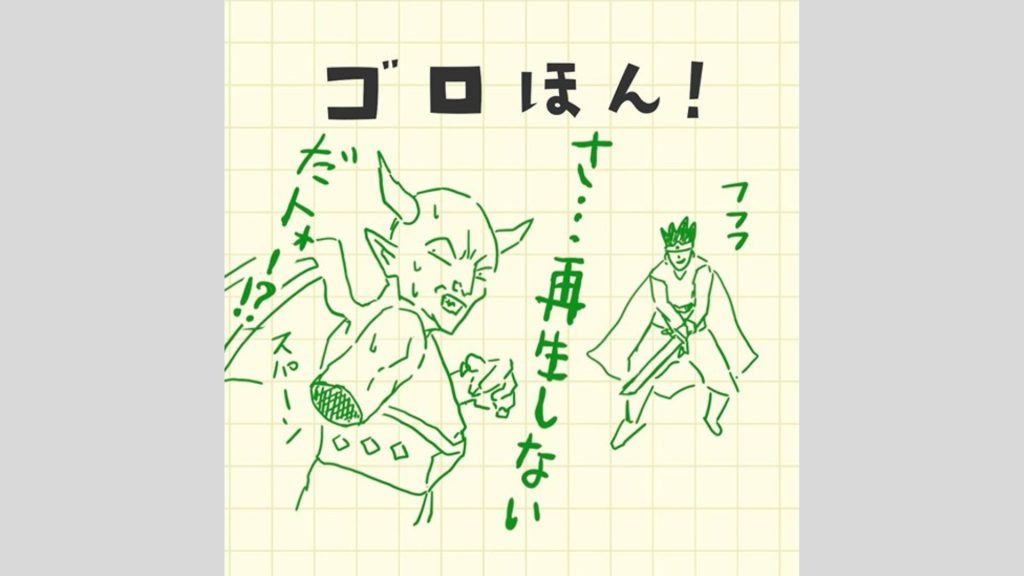 ゴロほん!
フフフ
さ…再生しない
だと
!?
スパーン